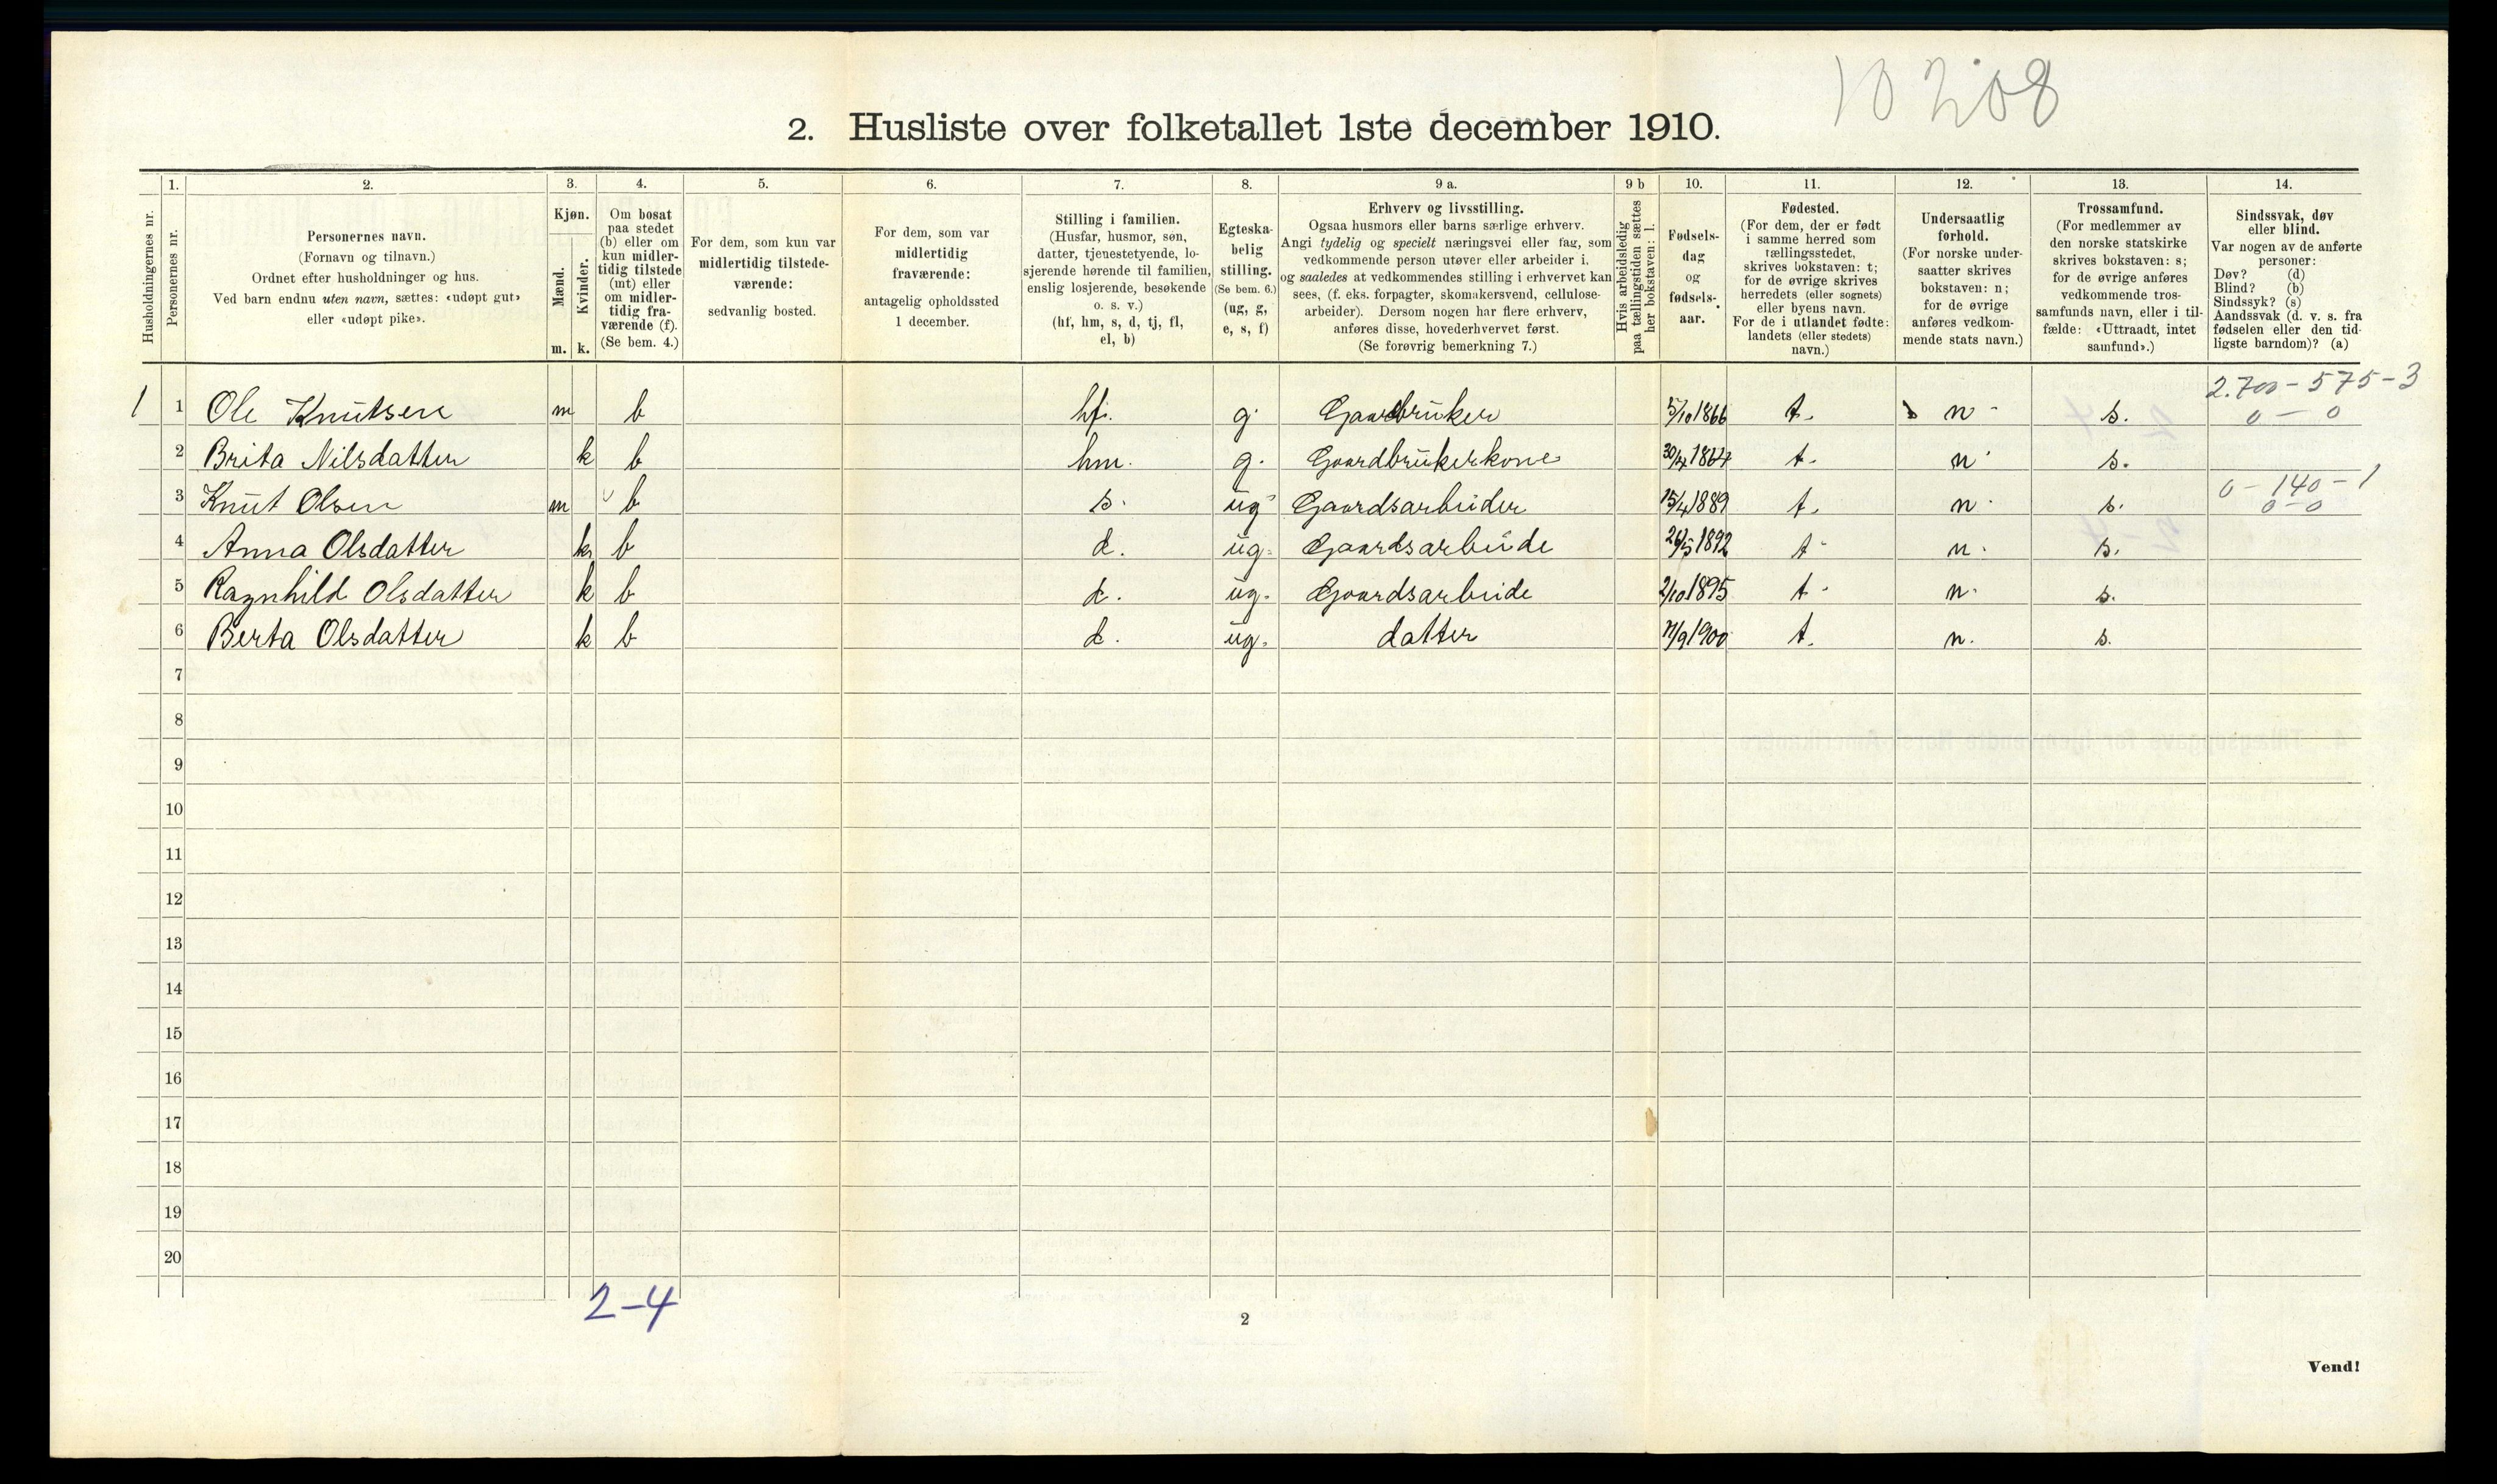 10208
2. Husliste over folketallet 1ste december 1910.
Husholdningernes nr.
1.
Personernes nr.
2.
Personernes navn.
(Fornavn og tilnavn.)
Ordnet efter husholdninger og hus.
Ved barn endnu uten navn, sættes: «udøpt gut»
eller «udøpt pike».
3.
Kjøn.
Mænd.
Kvinder.
m. k.
4.
Om bosat
paa stedet
(b) eller om
kun midler-
tidig tilstede
(mt) eller
om midler-
tidig fra-
værende (f).
(Se bem. 4.)
5.
For dem, som kun var
midlertidig tilstede-
værende:
sedvanlig bosted.
6.
For dem, som var
midlertidig
fraværende:
antagelig opholdssted
1 december.
7.
Stilling i familien.
(Husfar, husmor, søn,
datter, tjenestetyende, lo-
sjerende hørende til familien,
enslig losjerende, besøkende
o. s. v.)
(hf, hm, s, d, tj, fl,
el, b)
8.
Egteska-
belig
stilling.
(Se bem. 6.)
(ug, g,
e, s, f)
9 a.
Erhverv og livsstilling.
Ogsaa husmors eller barns særlige erhverv.
Angi tydelig og specielt næringsvei eller fag, som
vedkommende person utøver eller arbeider i.
og saaledes at vedkommendes stilling i erhvervet kan
sees, (f. eks. forpagter, skomakersvend, cellulose-
arbeider). Dersom nogen har flere erhverv,
anføres disse, hovederhvervet først.
(Se forøvrig bemerkning 7.)
9 b
Hvis arbeidsledig
paa tællingstiden sættes
her bokstaven: l.
10.
Fødsels-
dag
og
fødsels-
aar.
11.
Fødested.
(For dem, der er født
i samme herred som
tællingsstedet,
skrives bokstaven: t;
for de øvrige skrives
herredets (eller sognets)
eller byens navn.
For de i utlandet fødte:
landets (eller stedets)
navn.)
12.
Undersaatlig
forhold.
(For norske under-
saatter skrives
bokstaven: n;
for de øvrige
anføres vedkom-
mende stats navn.)
13.
Trossamfund.
(For medlemmer av
den norske statskirke
skrives bokstaven: s;
for de øvrige anføres
vedkommende tros-
samfunds navn, eller i til-
fælde: «Uttraadt, intet
samfund».)
14.
Sindssvak, døv
eller blind.
Var nogen av de anførte
personer:
Døv? (d)
Blind? (b)
Sindssyk? (s)
Aandssvak (d. v. s. fra
fødselen eller den tid-
ligste barndom)? (a)
2.700 - 575 - 3
1 1 Ole Knutsen m b hf. g. Gaardbruker 5/10 1866 t. n - s. 0 - 0
2 Brita Nilsdatter k b hm. g. Gaardbrukerkone t. n s.
0 - 140 - 1
3 Knut Olsen m b s. ug Gaardsarbeider 15/4 1889 t. n. s. 0 - 0
4 Anna Olsdatter k b d. ug. Gaardsarbeide 26/5 1892 t n. s.
5 Ragnhild Olsdatter k b d. ug. Gaardsarbeide 2/10 1895 t n. s.
6 Berta Olsdatter k b d. ug. datter t. n. s.
7
8
9
10
11
12
13
14
15
16
17
18
19
20
2-4
2
Vend!